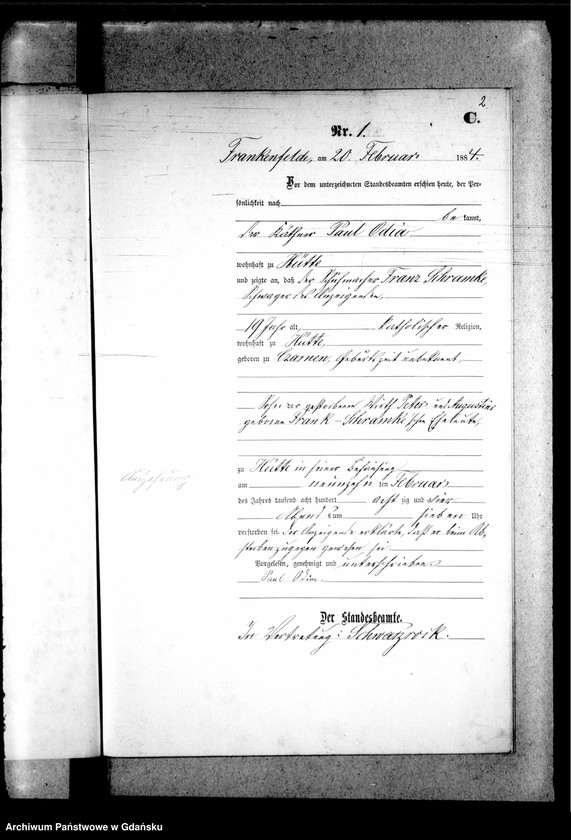 2
C.
Nr. 1.
Frankenfelde, am 20. Februar 1884.
Vor dem unterzeichneten Standesbeamten erschien heute, der Per-
sönlichkeit nach
be kannt,
der Käthner Paul Odia
wohnhaft zu Hütte
und zeigte an, daß der Schuhmacher Franz Schramke,
Schwager des Anzeigenden,
19 Jahr alt, katholischer Religion,
wohnhaft zu Hütte,
geboren zu Czarnen, Geburtszeit unbekannt,
Sohn der gestorbenen Wirth Peter und Augustine
geborne Frank - Schramke'schen Eheleute,
zu Hütte in seiner Behausung
am neunzehn ten Februar
des Jahres tausend acht hundert acht zig und vier
Abends um sieben Uhr
verstorben sei. Der Anzeigende erklärte, daß er beim Ab-
sterben zugegen gewesen sei.
Vorgelesen, genehmigt und unterschrieben
Paul Odia.
Der Standesbeamte.
In Vertretung:
Archiwum Państwowe w Gdańsku